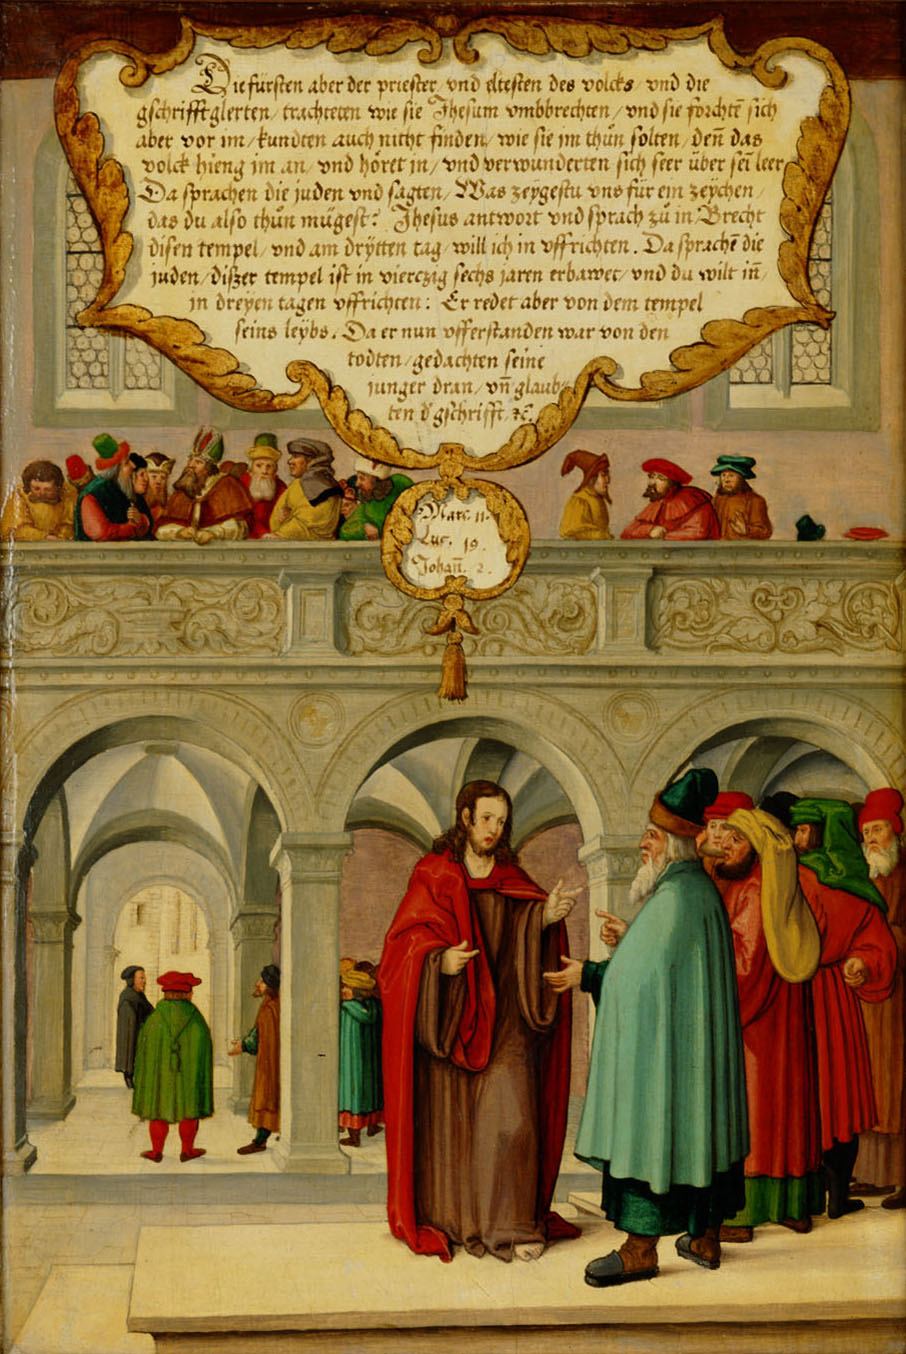 Die fürsten aber der priester/ vnd eltesten des volcks/ vnd die
gschrifftglerten/ trachteten wie sie Jhesum vmbbrechten/ vnd sie forchtē sich
aber vor im/ kundten auch nitht finden/ wie sie im thůn solten/ deñ das
volck hieng im an/ vnd höret in/ vnd verwunderten sich seer über sein leer
Da sprachen die juden vnd sagten/ Was zeygestu vns für ein zeychen/
das du also thůn mügest? Jhesus antwort vnd sprach zů in/ Brecht
disen tempel/ vnd am drytten tag/ will ich in vffrichten. Da sprachē die
juden/ diszer tempel ist in vierczig sechs jaren erbawet/ vnd du wilt iñ/
in dreyen tagen vffrichten: Er redet aber von dem tempel
seins leybs. Da er nun vfferstanden war von den
todten/ gedachten seine
junger dran/ vñ glaub-
ten d' gschrifft/ ꝛc.
Marc 11.
Luc. 19.
Johañ. 2.